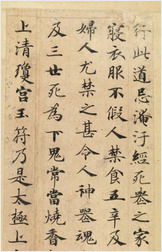 行此道忌淹汙經死喪之家
寢衣服不假人禁食五辛及
婦人尤禁之甚令人神喪魂
及三世死為下鬼常當燒香
上清瓊宮玉符乃是太極上